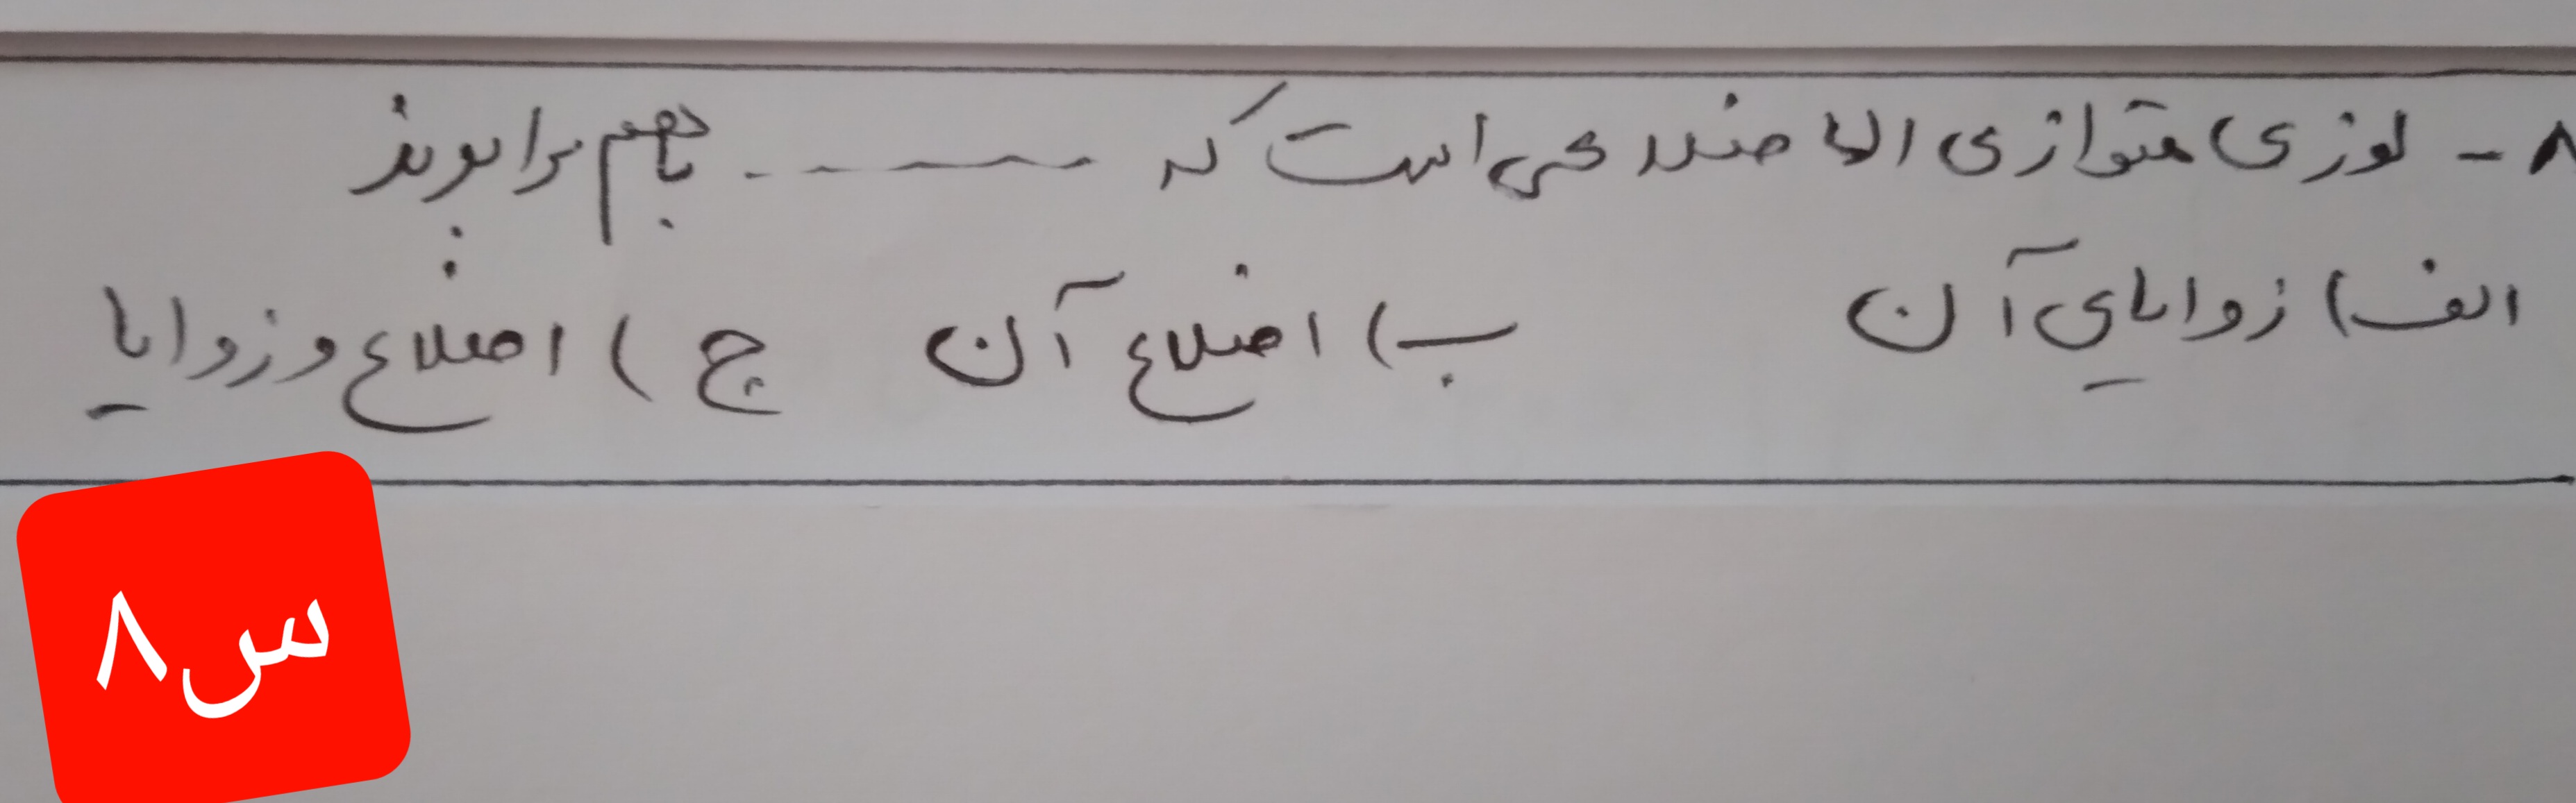 ۸- لوزی متوازی الاضلاعی است که ------ باهم برابرند
الف) زوایای آن ب) اضلاع آن ج) اضلاع و زوایا
س۸